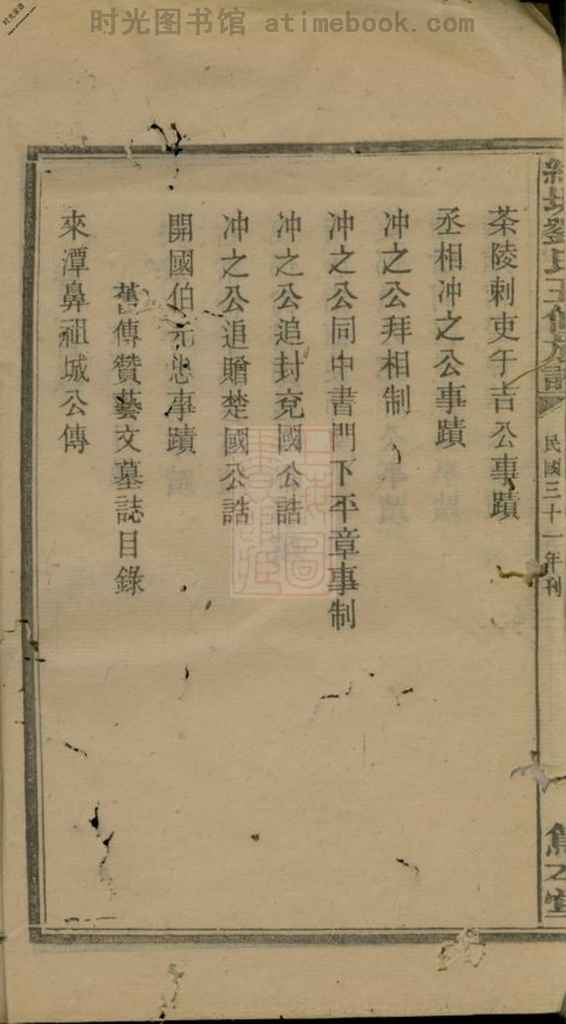 时光图书馆 atimebook.com
劉氏五修族譜
民國三十一年刊
茶陵刺吏于吉公事蹟
丞相冲之公事蹟
冲之公拜相制
冲之公同中書門下平章事制
冲之公追封兗國公誥
冲之公追贈楚國公誥
開國伯元事蹟
舊傳贊藝文墓誌目錄
來潭鼻祖城公傳